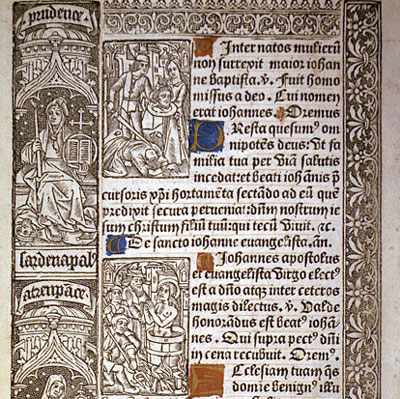 prudence.
Inter natos mulierū
non surrexit maior iohan
ne Baptista. v̄. Fuit homo
missus a deo. Cui nomen
erat iohannes. Oremus
PResta quesum⁹ om
nipotēs deus: vt fa
milia tua per viā salutis
incedat: et beati iohānis p̄
cursoris xp̄i hortamēta sectādo ad eū quē
predixit secura perueniat: dn̄m nostrum ie
sum christum filiū tuū: qui tecū viuit. ⁊c.
De sancto iohanne euangelista. an.
Iohannes apostolus
et euangelista virgo elect⁹
est a dn̄o atq̄ inter ceteros
magis dilectus. v̄. Valde
honorādus est beat⁹ iohā-
nes. Qui supra pect⁹ dn̄i
in cena recubuit. Orem⁹.
Ecclesiam tuam q̄s
domīe benign⁹ illu
sardenapal⁹
atrenpāce.